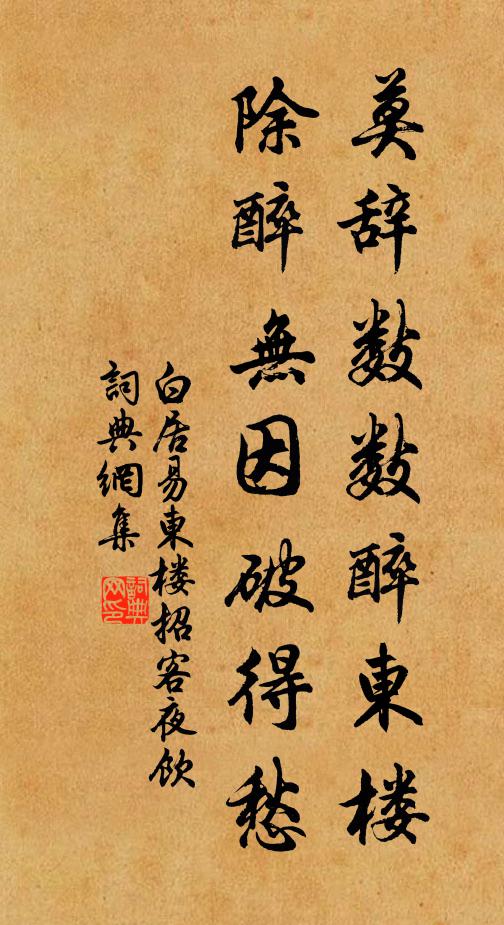 莫辞数数醉東楼
除醉無因破得愁
白居易東楼招客夜飲
詞典網集
詞典
网印